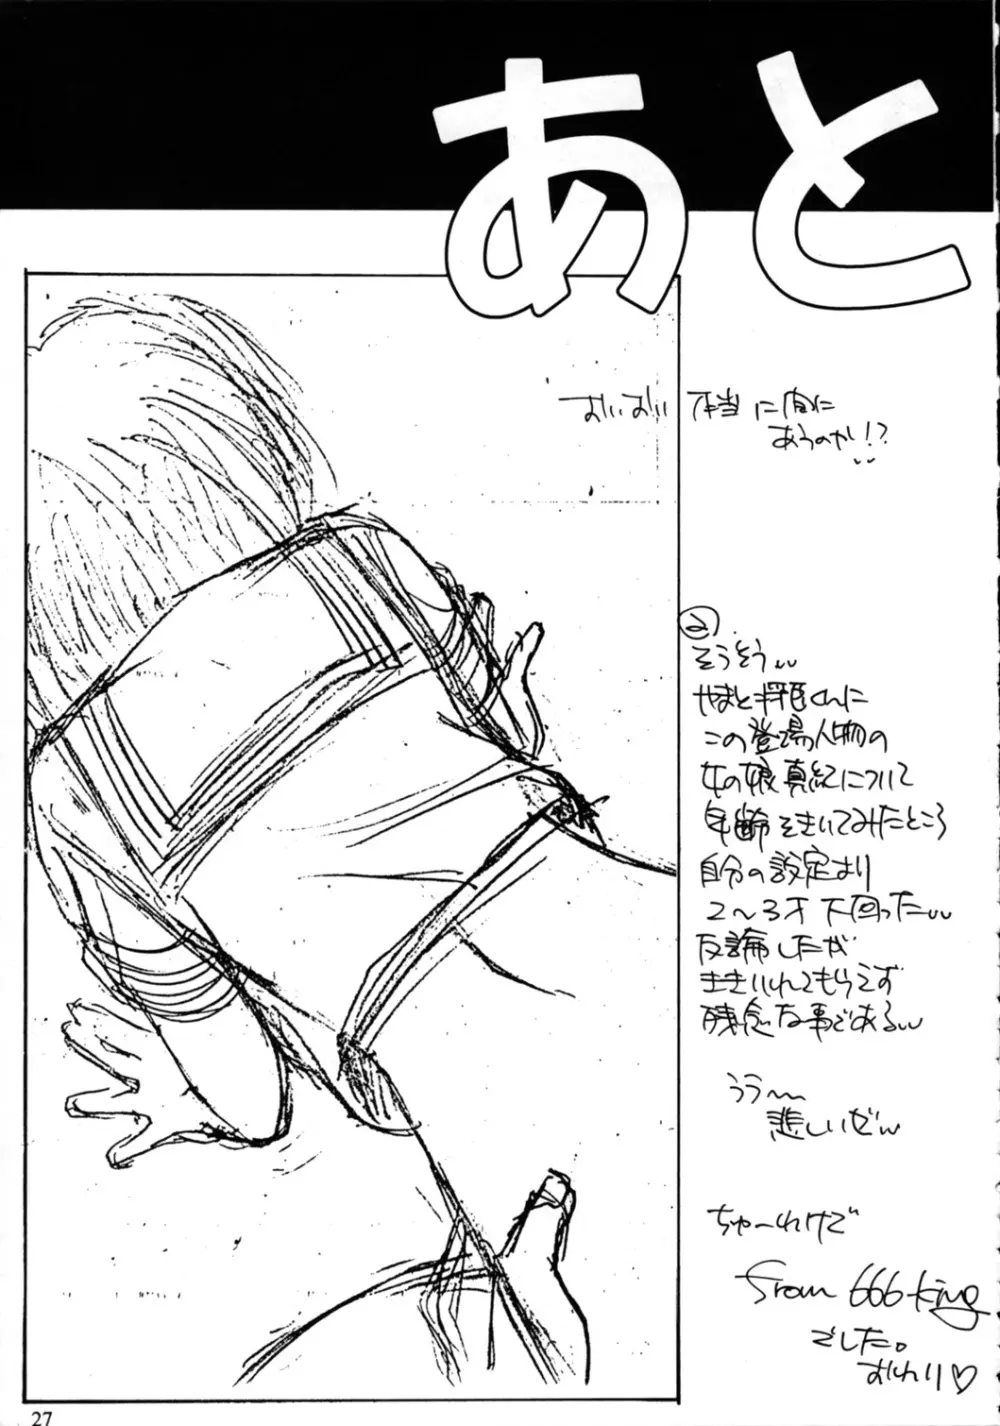 あと
おいおい 本当に間に
あうのかい!?
②
そうそう
やまと
この登場人物の
女の娘真紀について
年齢をきいてみたところ
自分の設定より
2〜3才下回った
反論したが
ききいれてもらえず
残念な事である
うう〜
悲しいぜ
ちゃーれけで
From 666 king
でした。
おわり♡
27